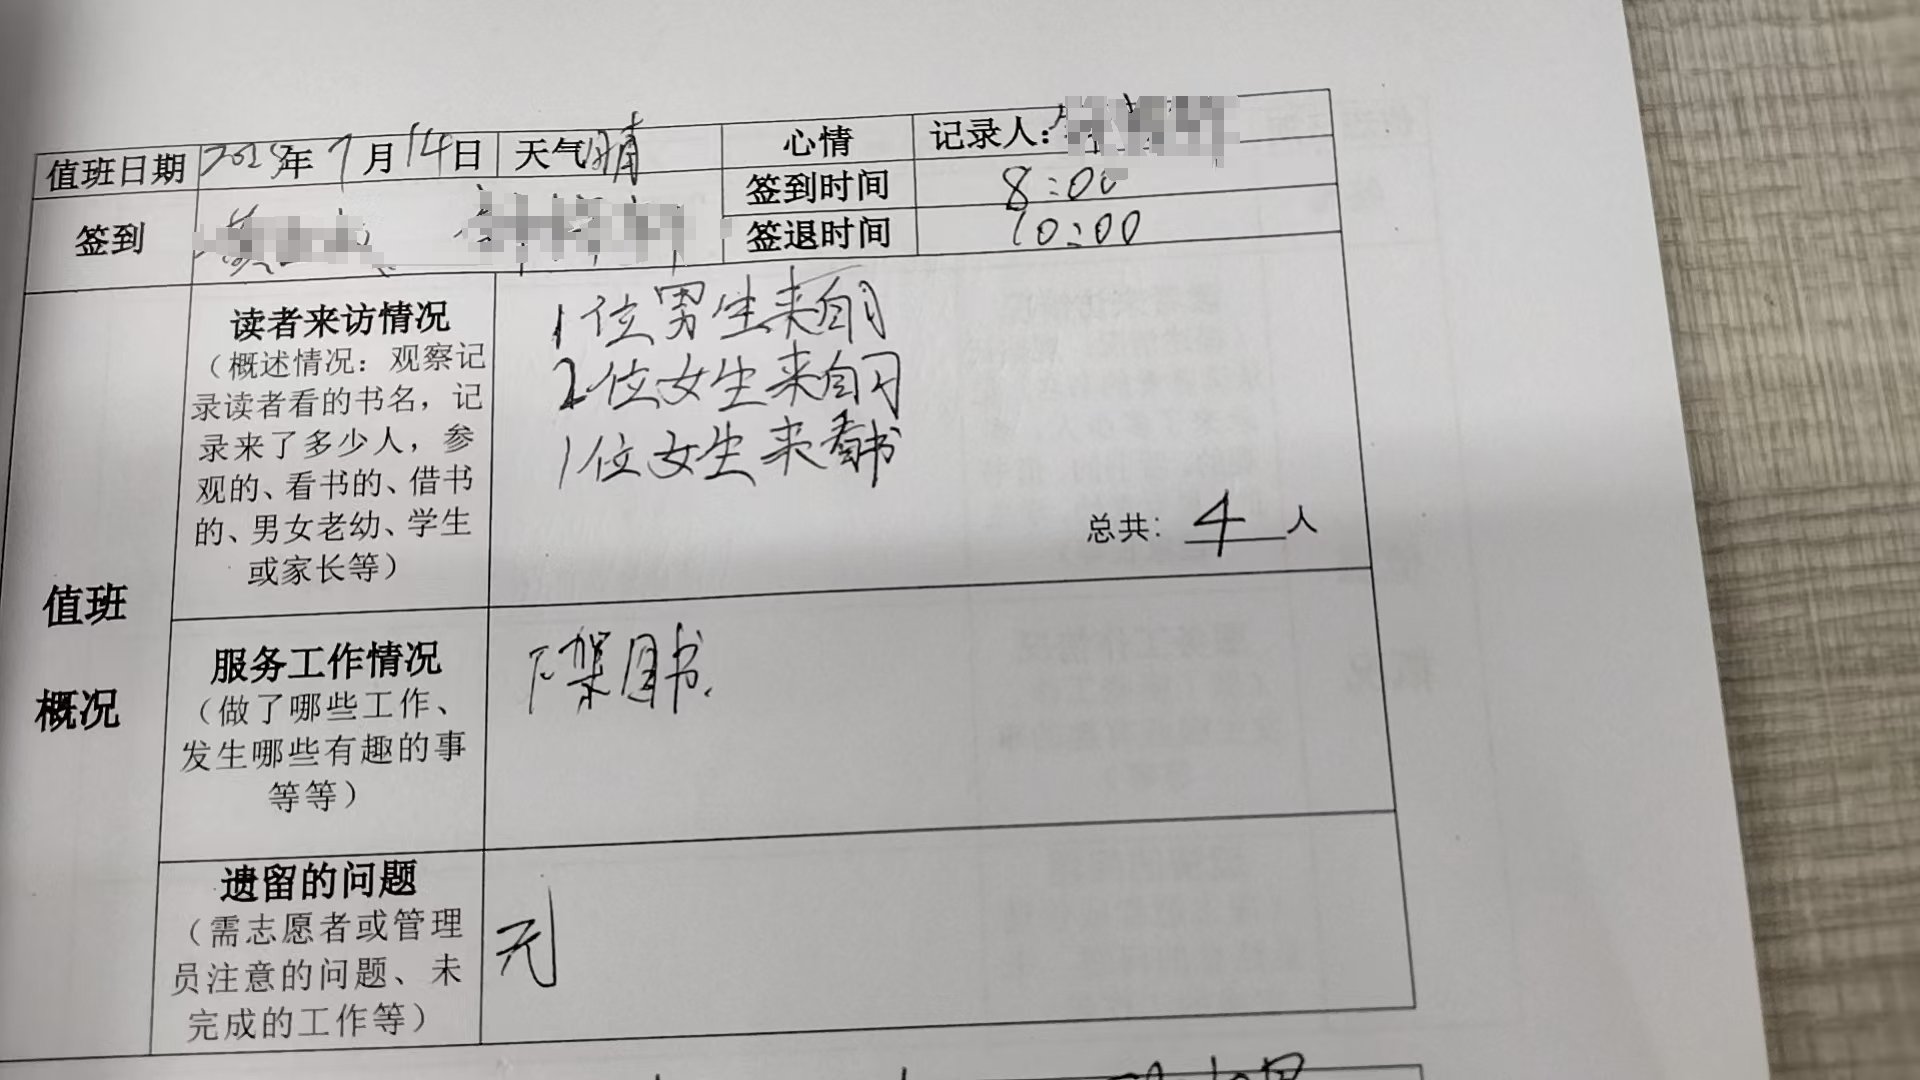 值班日期 年 7 月 14 日 天气 晴 心情 记录人：
签到 签到时间 8:00
签退时间 10:00
值班
概况
读者来访情况
（概述情况：观察记
录读者看的书名，记
录来了多少人，参
观的、看书的、借书
的、男女老幼、学生
或家长等）
1位男生来自习
2位女生来自习
1位女生来看书
总共： 4 人
服务工作情况
（做了哪些工作、
发生哪些有趣的事
等等）
下架图书.
遗留的问题
（需志愿者或管理
员注意的问题、未
完成的工作等）
无